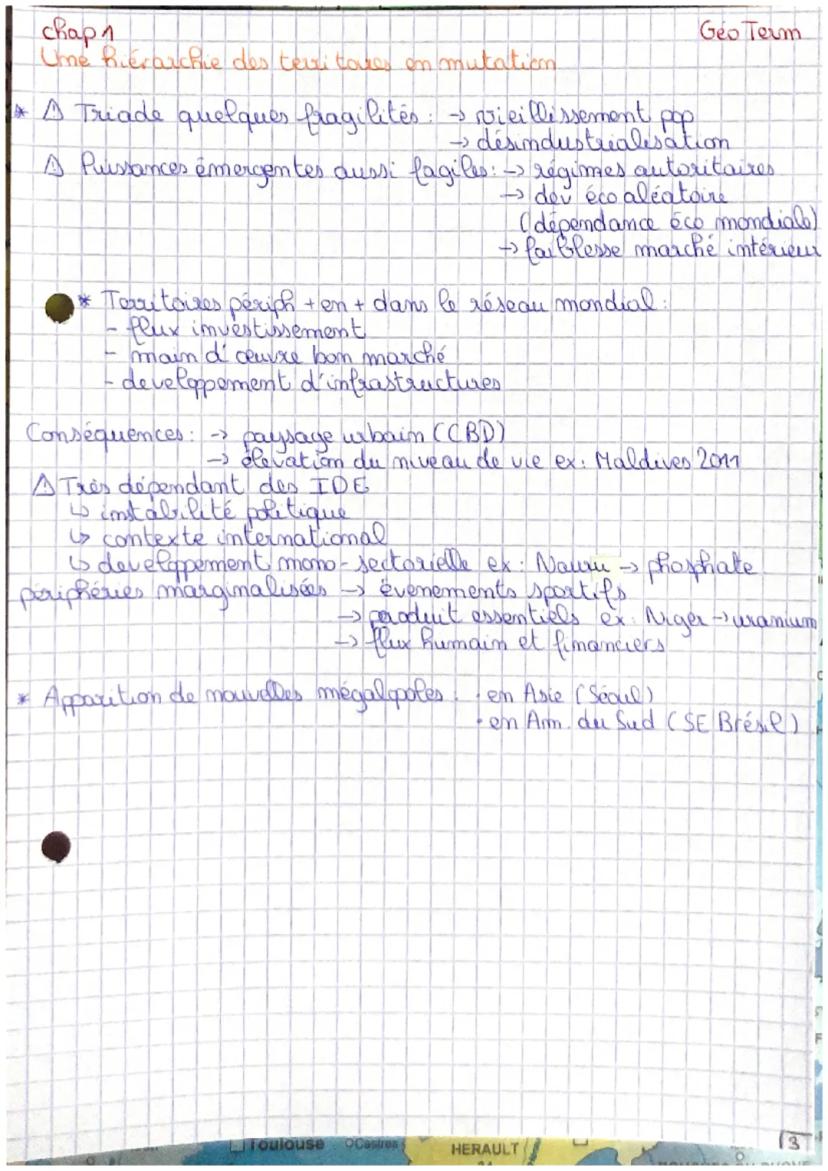 chap 1
Géo Term
Une hiérarchie des territoires en mutation
* ⚠ Triade quelques fragilités : → vieillissement pop
→ désindustrialisation
⚠ Puissances émergentes aussi fagiles : → régimes autoritaires
→ dev éco aléatoire
(dépendance éco mondiale)
→ faiblesse marché intérieur
* Territoires périph + en + dans le réseau mondial :
- flux investissement
- main d'œuvre bon marché
- developpement d'infrastructures
Conséquences : → paysage urbain (CBD)
→ élevation du niveau de vie ex : Maldives 2011
⚠ Très dépendant des IDE
↳ instabilité politique
↳ contexte international
↳ developpement mono-sectorielle ex : Nauru → phosphate
périphéries marginalisées → évenements sportifs
→ produit essentiels ex : Niger → uranium
→ flux humain et financiers
* Apparition de nouvelles mégalopoles : · en Asie (Séoul)
· en Am. du Sud (SE Brésil)
Toulouse
Castres
HERAULT
3